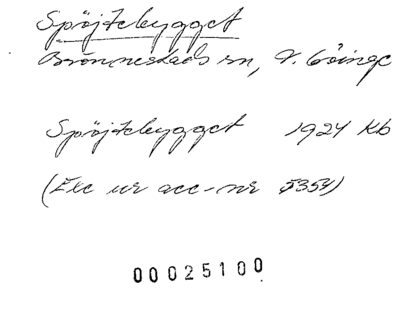 Spöjtebygget
Brönnestads sn, V. Göinge
Spöjtebygget 1924 Kb
(Exc ur acc-nr 5354)
00025100